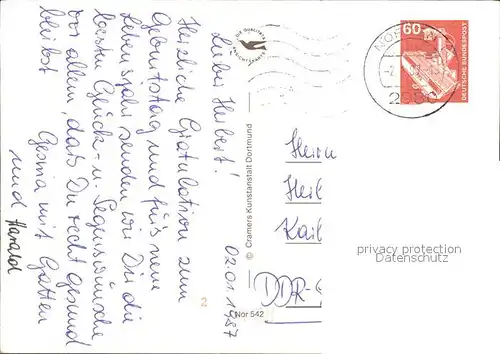 02.01.1987
Lieber Herbert!
Herzliche Gratulation zum
Geburtstag und für's neue
Lebensjahr senden wir Dir die
besten Glück- u. Segenswünsche
vor allem, daß Du recht gesund
bleibst
Gesina mit Gatten
und Harald
DIE QUALITÄTS
ANSICHTSKARTE
© Cramers Kunstanstalt Dortmund
Nor 542
2
60
DEUTSCHE BUNDESPOST
Herrn
Heil
Kail
DDR-
privacy protection
Datenschutz